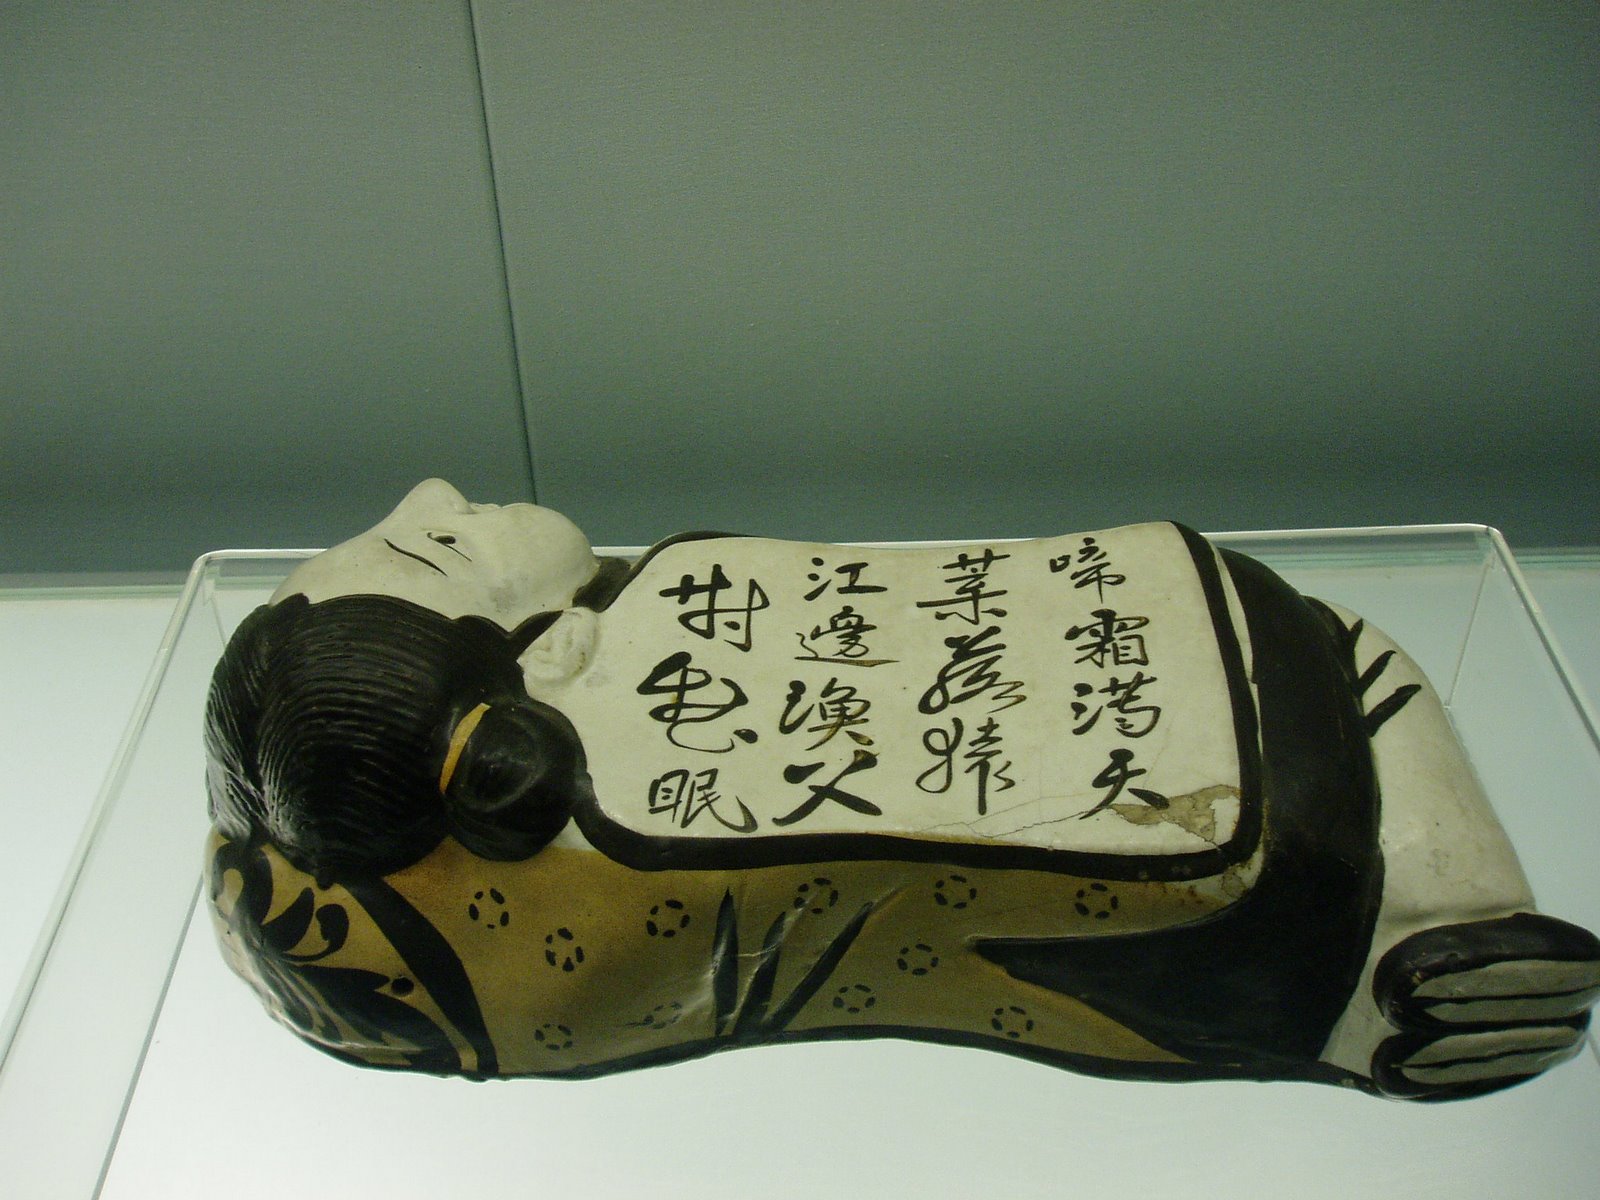 葉落猿
啼霜滿天
江邊漁父
對愁眠